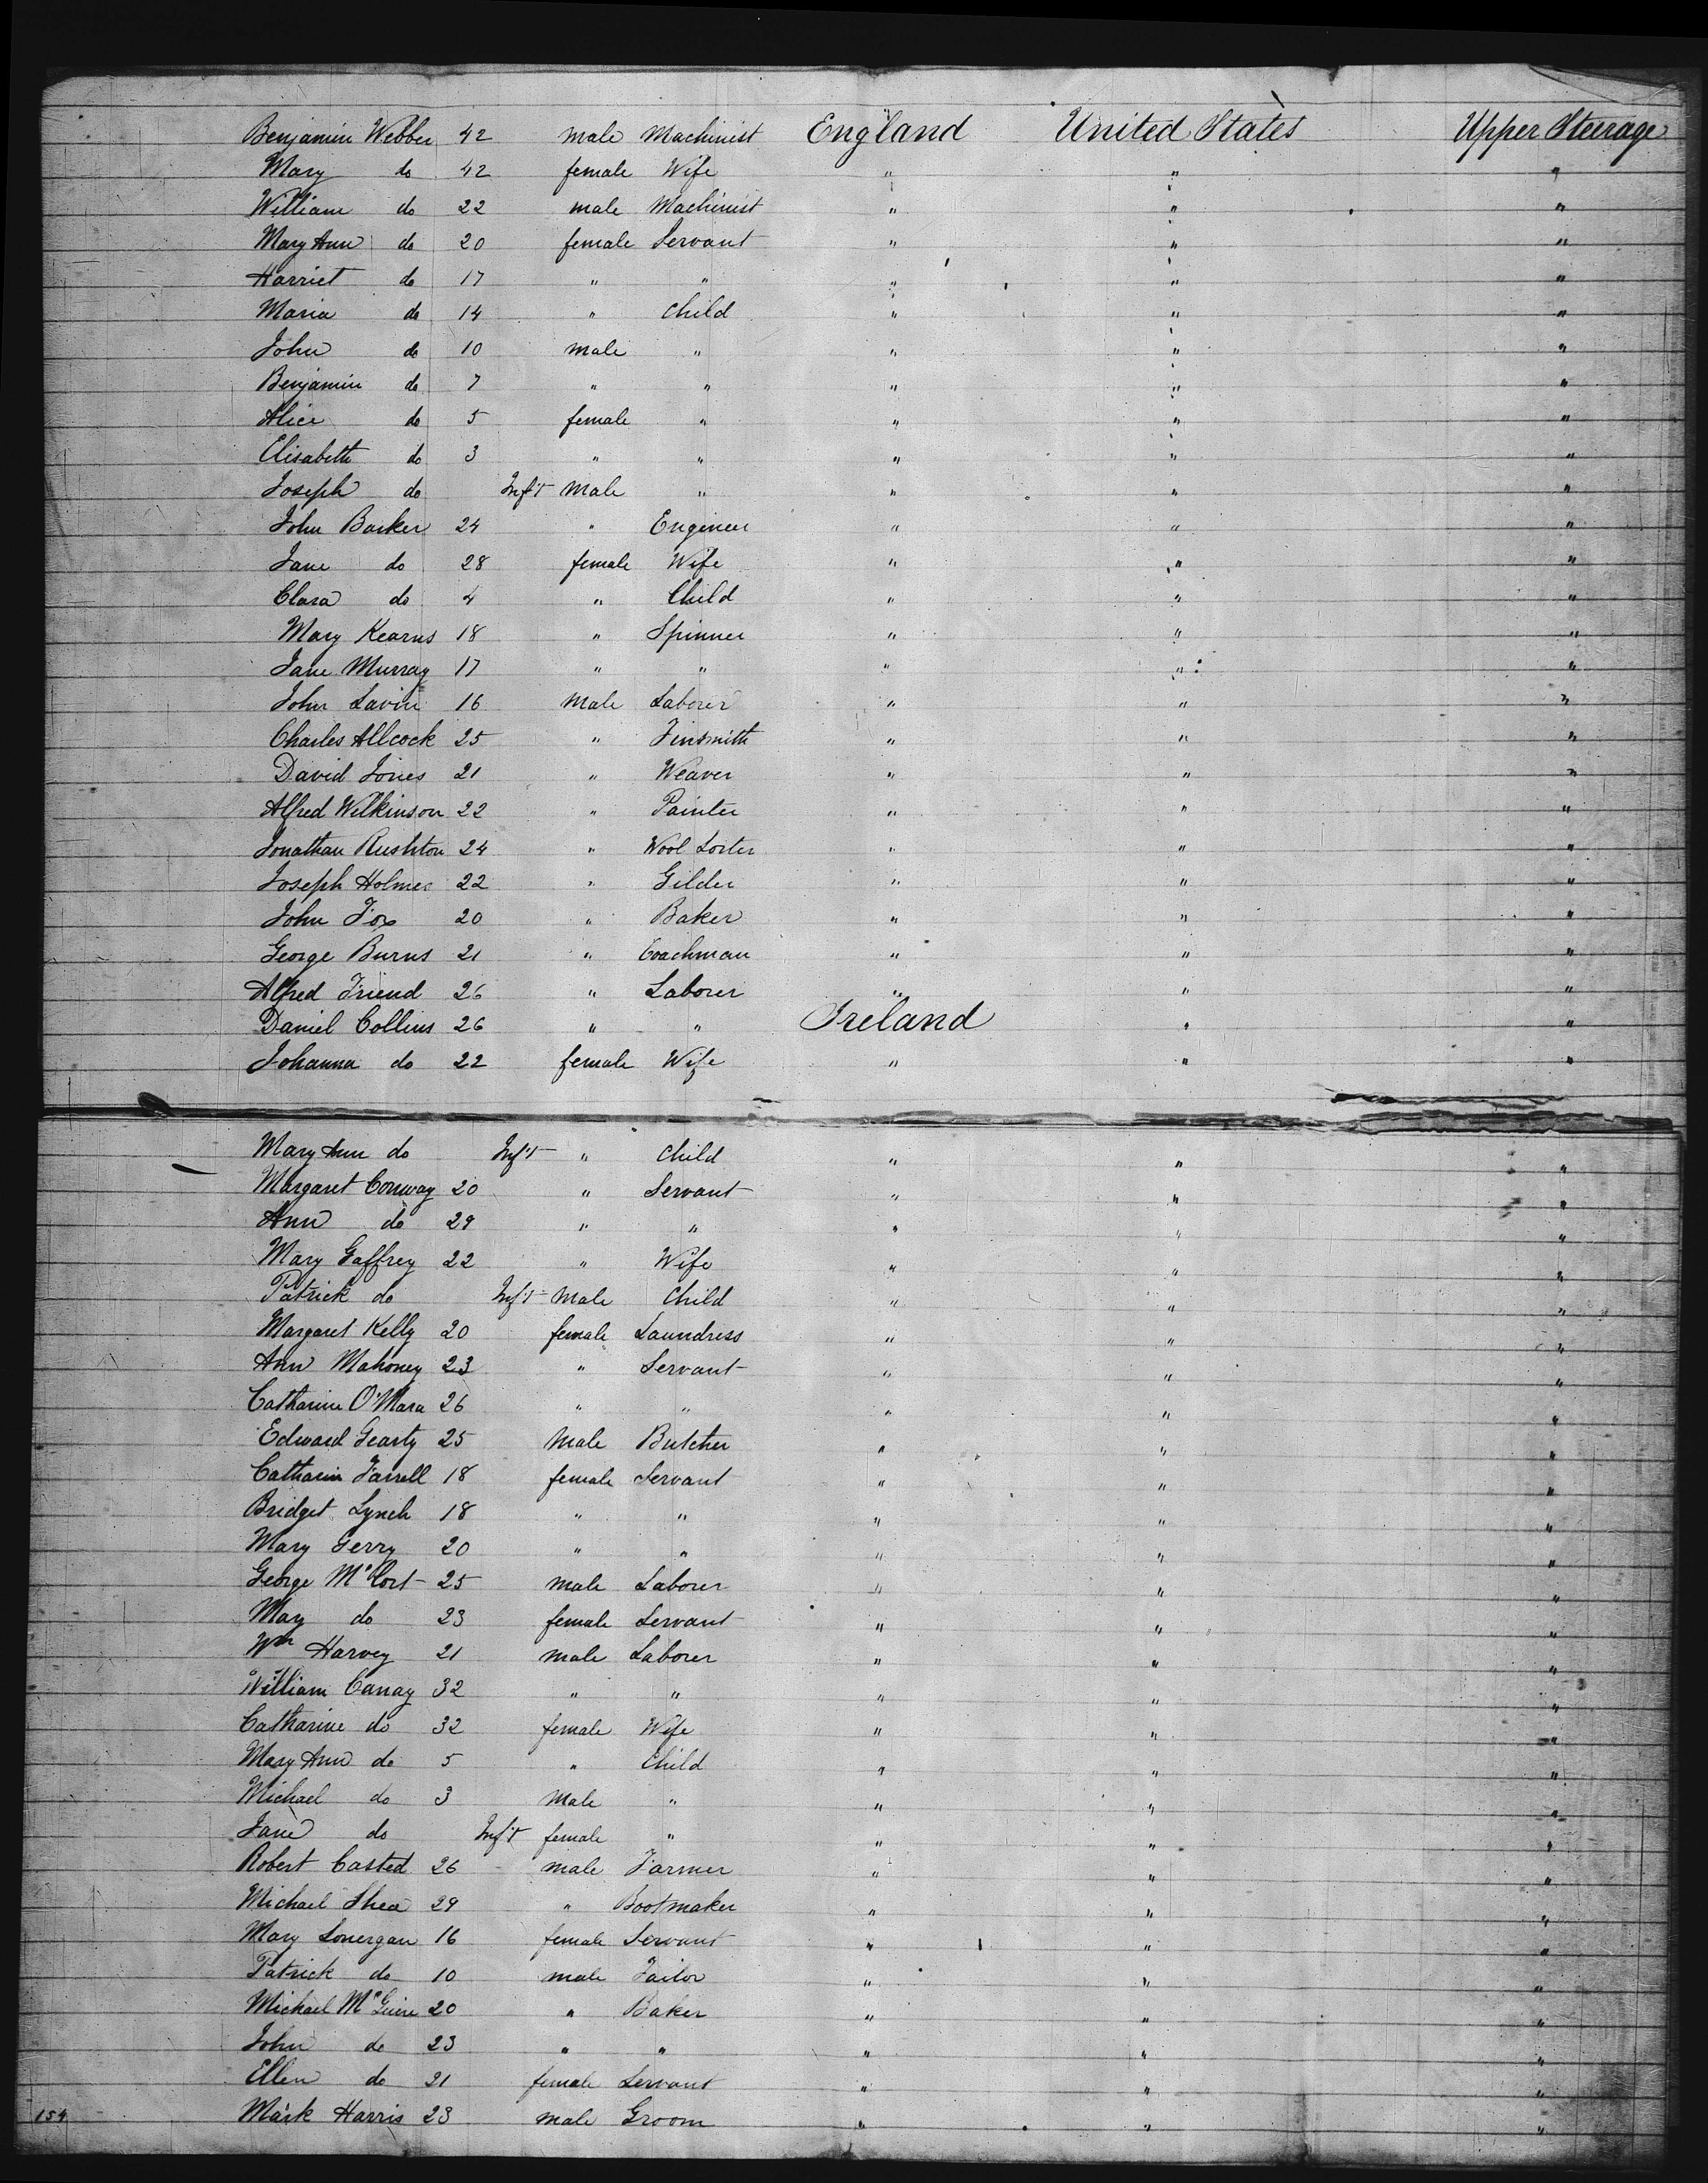 Benjamin Webber 42 male Machinist England United States Upper Steerage
Mary do 42 female Wife " " "
William do 22 male Machinist " " "
Mary Ann do 20 female Servant " " "
Harriet do 17 " " " " "
Maria do 14 " Child " " "
John do 10 male " " " "
Benjamin do 7 " " " " "
Alice do 5 female " " " "
Elisabeth do 3 " " " " "
Joseph do Inf't male " " " "
John Barker 24 " Engineer " " "
Jane do 28 female Wife " " "
Clara do 4 " Child " " "
Mary Kearns 18 " Spinner " " "
Jane Murray 17 " " " " "
John Lavin 16 male Laborer " " "
Charles Allcock 25 " Tinsmith " " "
David Jones 21 " Weaver " " "
Alfred Wilkinson 22 " Painter " " "
Jonathan Rushton 24 " Wool Sorter " " "
Joseph Holmes 22 " Gilder " " "
John Fox 20 " Baker " " "
George Burns 21 " Coachman " " "
Alfred Friend 26 " Laborer " " "
Daniel Collins 26 " " Ireland " "
Johanna do 22 female Wife " " "
Mary Ann do Inf't " Child " " "
Margaret Conway 20 " Servant " " "
Ann do 29 " " " " "
Mary Gaffrey 22 " Wife " " "
Patrick do Inf't male Child " " "
Margaret Kelly 20 female Laundress " " "
Ann Mahoney 23 " Servant " " "
Catharine O'Mara 26 " " " " "
Edward Gearty 25 male Butcher " " "
Catharin Farrell 18 female Servant " " "
Bridget Lynch 18 " " " " "
Mary Gerry 20 " " " " "
George McCort 25 male Laborer " " "
May do 23 female Servant " " "
Wm Harvey 21 male Laborer " " "
William Canay 32 " " " " "
Catharine do 32 female Wife " " "
Mary Ann do 5 " Child " " "
Michael do 3 male " " " "
Jane do Inf't female " " " "
Robert Casted 26 male Farmer " " "
Michael Shea 29 " Bootmaker " " "
Mary Lonergan 16 female Servant " " "
Patrick do 10 male Tailor " " "
Michael McGuire 20 " Baker " " "
John do 23 " " " " "
Ellen do 21 female Servant " " "
154 Mark Harris 23 male Groom " " "